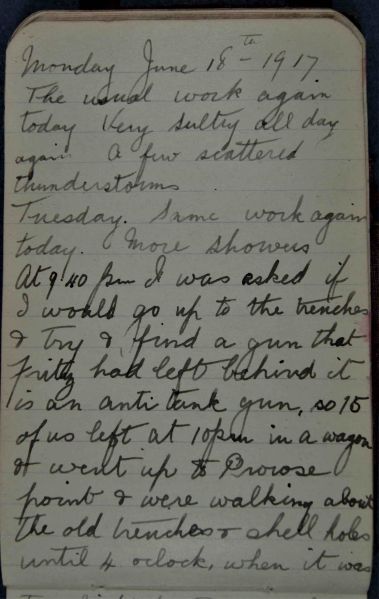 Monday June 18th - 1917
The usual work again
today Very sultry all day
again A few scattered
thunderstorms
Tuesday. Same work again
today. More showers
At 9 40 pm I was asked if
I would go up to the trenches
& try & find a gun that
Fritz had left behind it
is an anti tank gun, so 15
of us left at 10pm in a wagon
& went up to Prowse
point & were walking about
the old trenches & shell holes
until 4 oclock, when it was